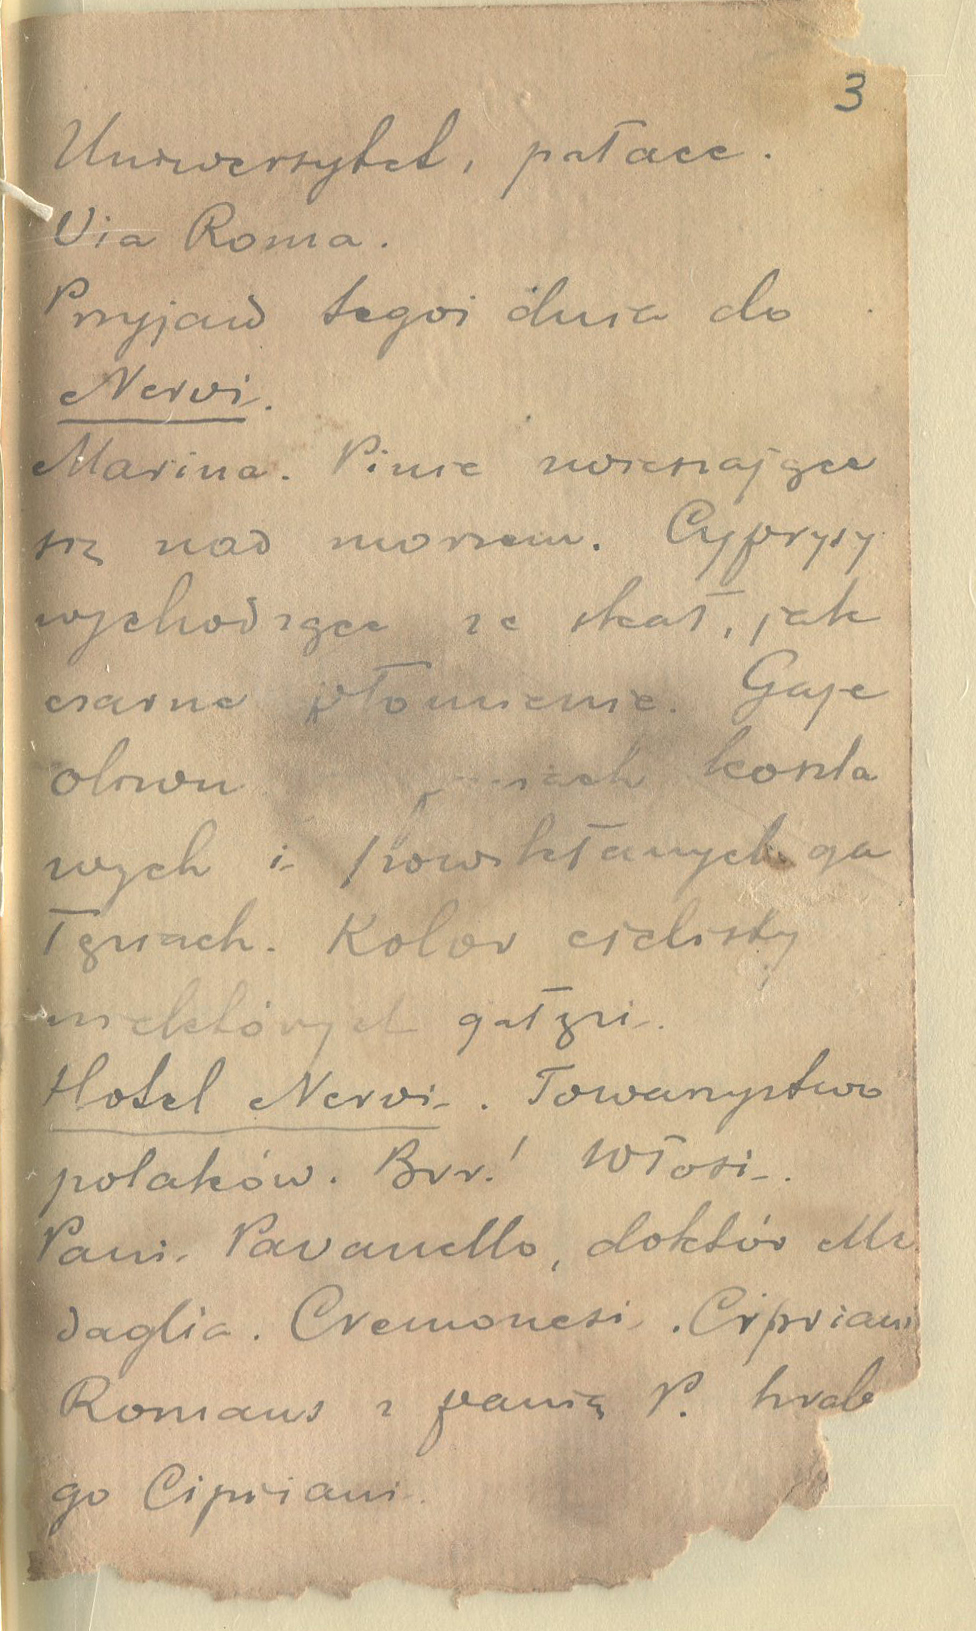 3
Uniwersytet, pałace.
Via Roma.
Przyjazd tegoż dnia do
Nervi.
Marina. Pinie zwieszające
się nad morzem. Cyprysy
wychodzące ze skał, jak
czarne płomienie. Gaje
oliwn koszla
wych i powikłanych ga
łęziach. Kolor cielisty
niektórych gałęzi.
Hotel Nervi. Towarzystwo
polaków. Brr! Włosi.
Pani Pavanello, doktór Me
daglia. Cremonesi. Cipriani
Romans z panią P. hrab
go Cipriani.